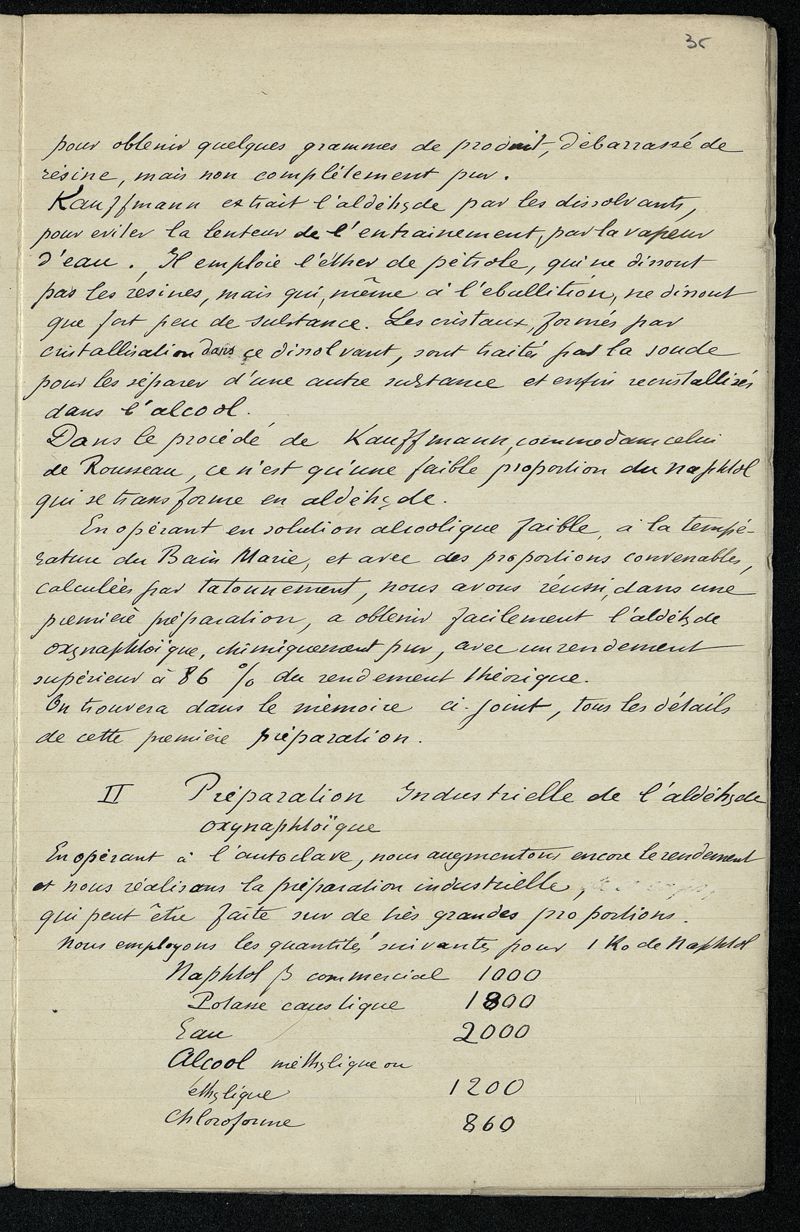 35
pour obtenir quelques grammes de produit, débarrassé de
résine, mais non complétement pur.
Kauffmann extrait l'aldéhyde par les dissolvants,
pour eviter la lenteur de l'entrainement, par la vapeur
d'eau. Il emploie l'éther de pétrole, qui ne dissout
pas les résines, mais qui, même à l'ebullition, ne dissout
que fort peu de substance. Les cristaux, formés par
cristallisation dans ce dissolvant, sont traités par la soude
pour les séparer d'une autre substance et enfin recristallisés
dans l'alcool.
Dans le procédé de Kauffmann, comme dans celui
de Rousseau, ce n'est qu'une faible proportion du naphtol
qui se transforme en aldéhyde.
En opérant en solution alcoolique faible, à la tempé-
rature du Bain Marie, et avec des proportions convenables,
calculées par tatonnement, nous avons réussi, dans une
première préparation, a obtenir facilement l'aldéhyde
oxynaphtoïque, chimiquement pur, avec un rendement
supérieur à 86 % du rendement théorique.
On trouvera dans le mémoire ci-joint, tous les détails
de cette première préparation.
II Préparation Industrielle de l'aldéhyde
oxynaphtoïque
En opérant à l'autoclave, nous augmentons encore le rendement
et nous réalisons la préparation industrielle,
qui peut être faite sur de très grandes proportions.
Nous employons les quantités suivantes pour 1 Ko de Naphtol
Naphtol β commercial 1000
Potasse caustique 1800
Eau 2000
Alcool méthylique ou
éthylique 1200
Chloroforme 860